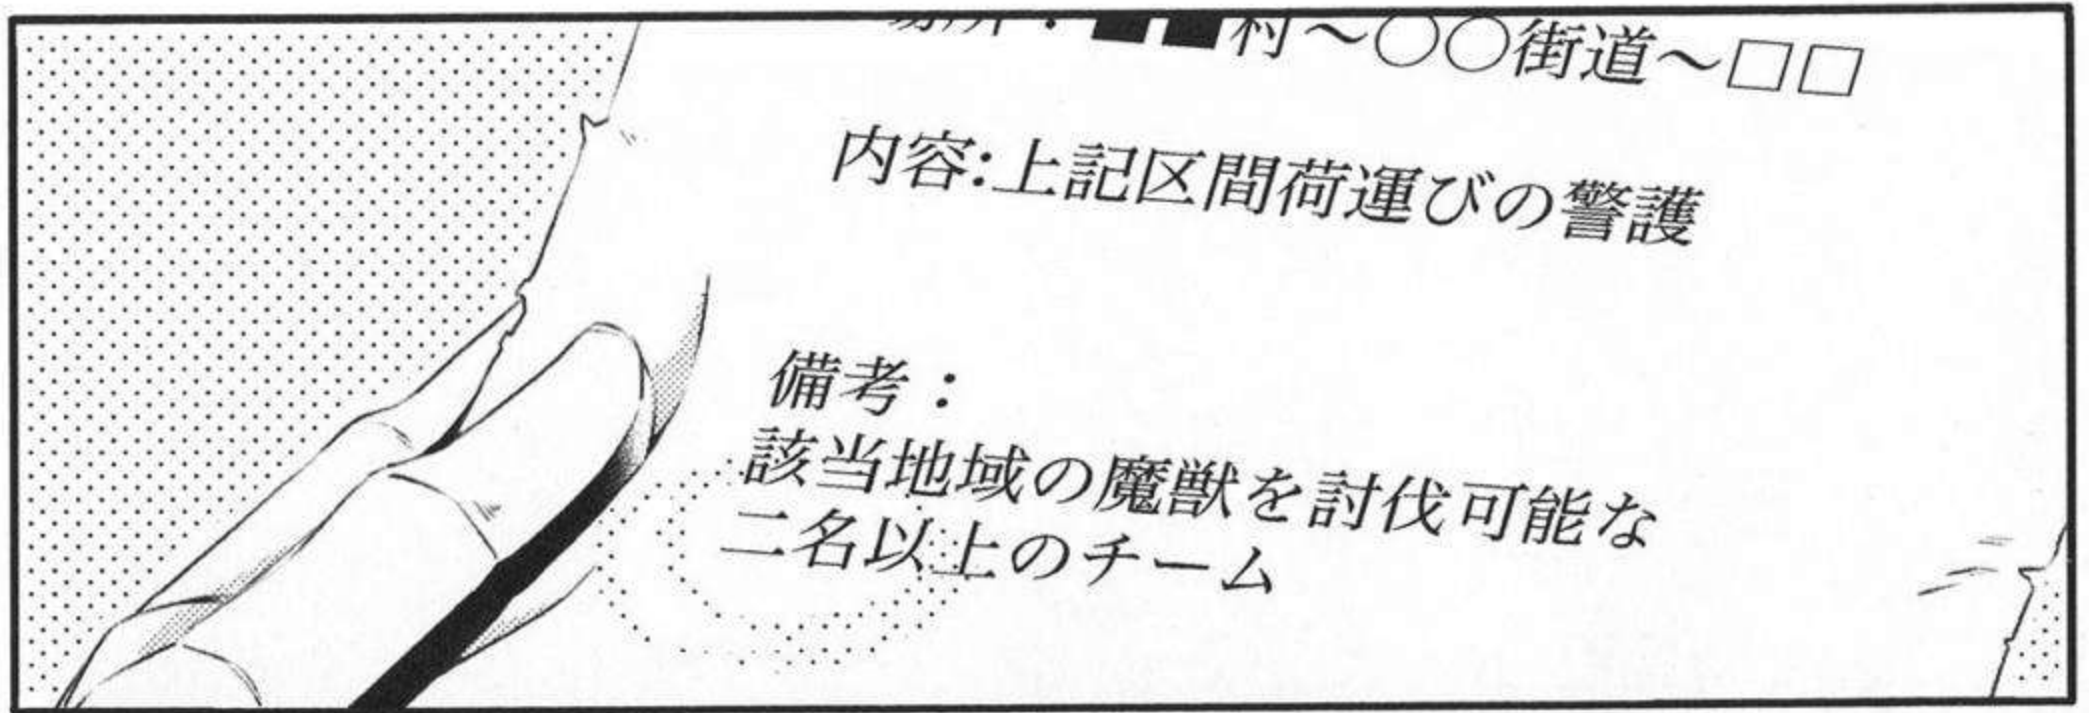 場所：■■村～○○街道～□□
内容:上記区間荷運びの警護
備考：
該当地域の魔獣を討伐可能な
二名以上のチーム